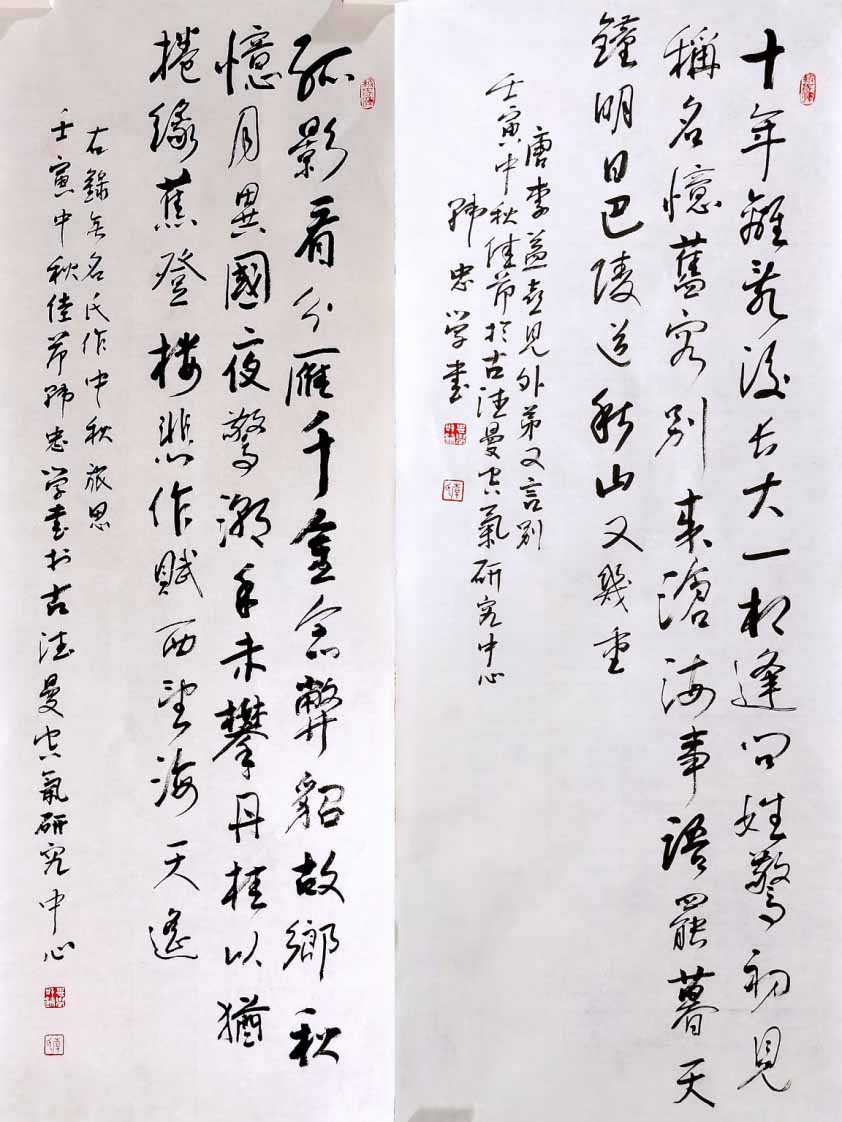 十年離亂後長大一相逢問姓驚初見
稱名憶舊容別來滄海事語罷暮天
鐘明日巴陵道秋山又幾重
唐李益喜見外弟又言別
壬寅中秋佳節於古法曼氣研究中心
韩忠学書
孤影看分雁千金念弊貂故鄉秋
憶月異國夜驚潮手未攀丹桂以猶
捲緣蕉登樓悲作賦西望海天遙
右錄無名氏作中秋旅思
壬寅中秋佳節韩忠学書於古法曼氣研究中心